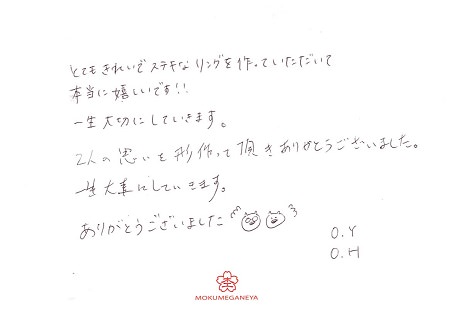 とてもきれいでステキなリングを作っていただいて
本当に嬉しいです!!
一生大切にしていきます。
2人の思いを形作って頂きありがとうございました。
一生大事にしていきます。
ありがとうございました
O.Y
O.H
MOKUMEGANEYA